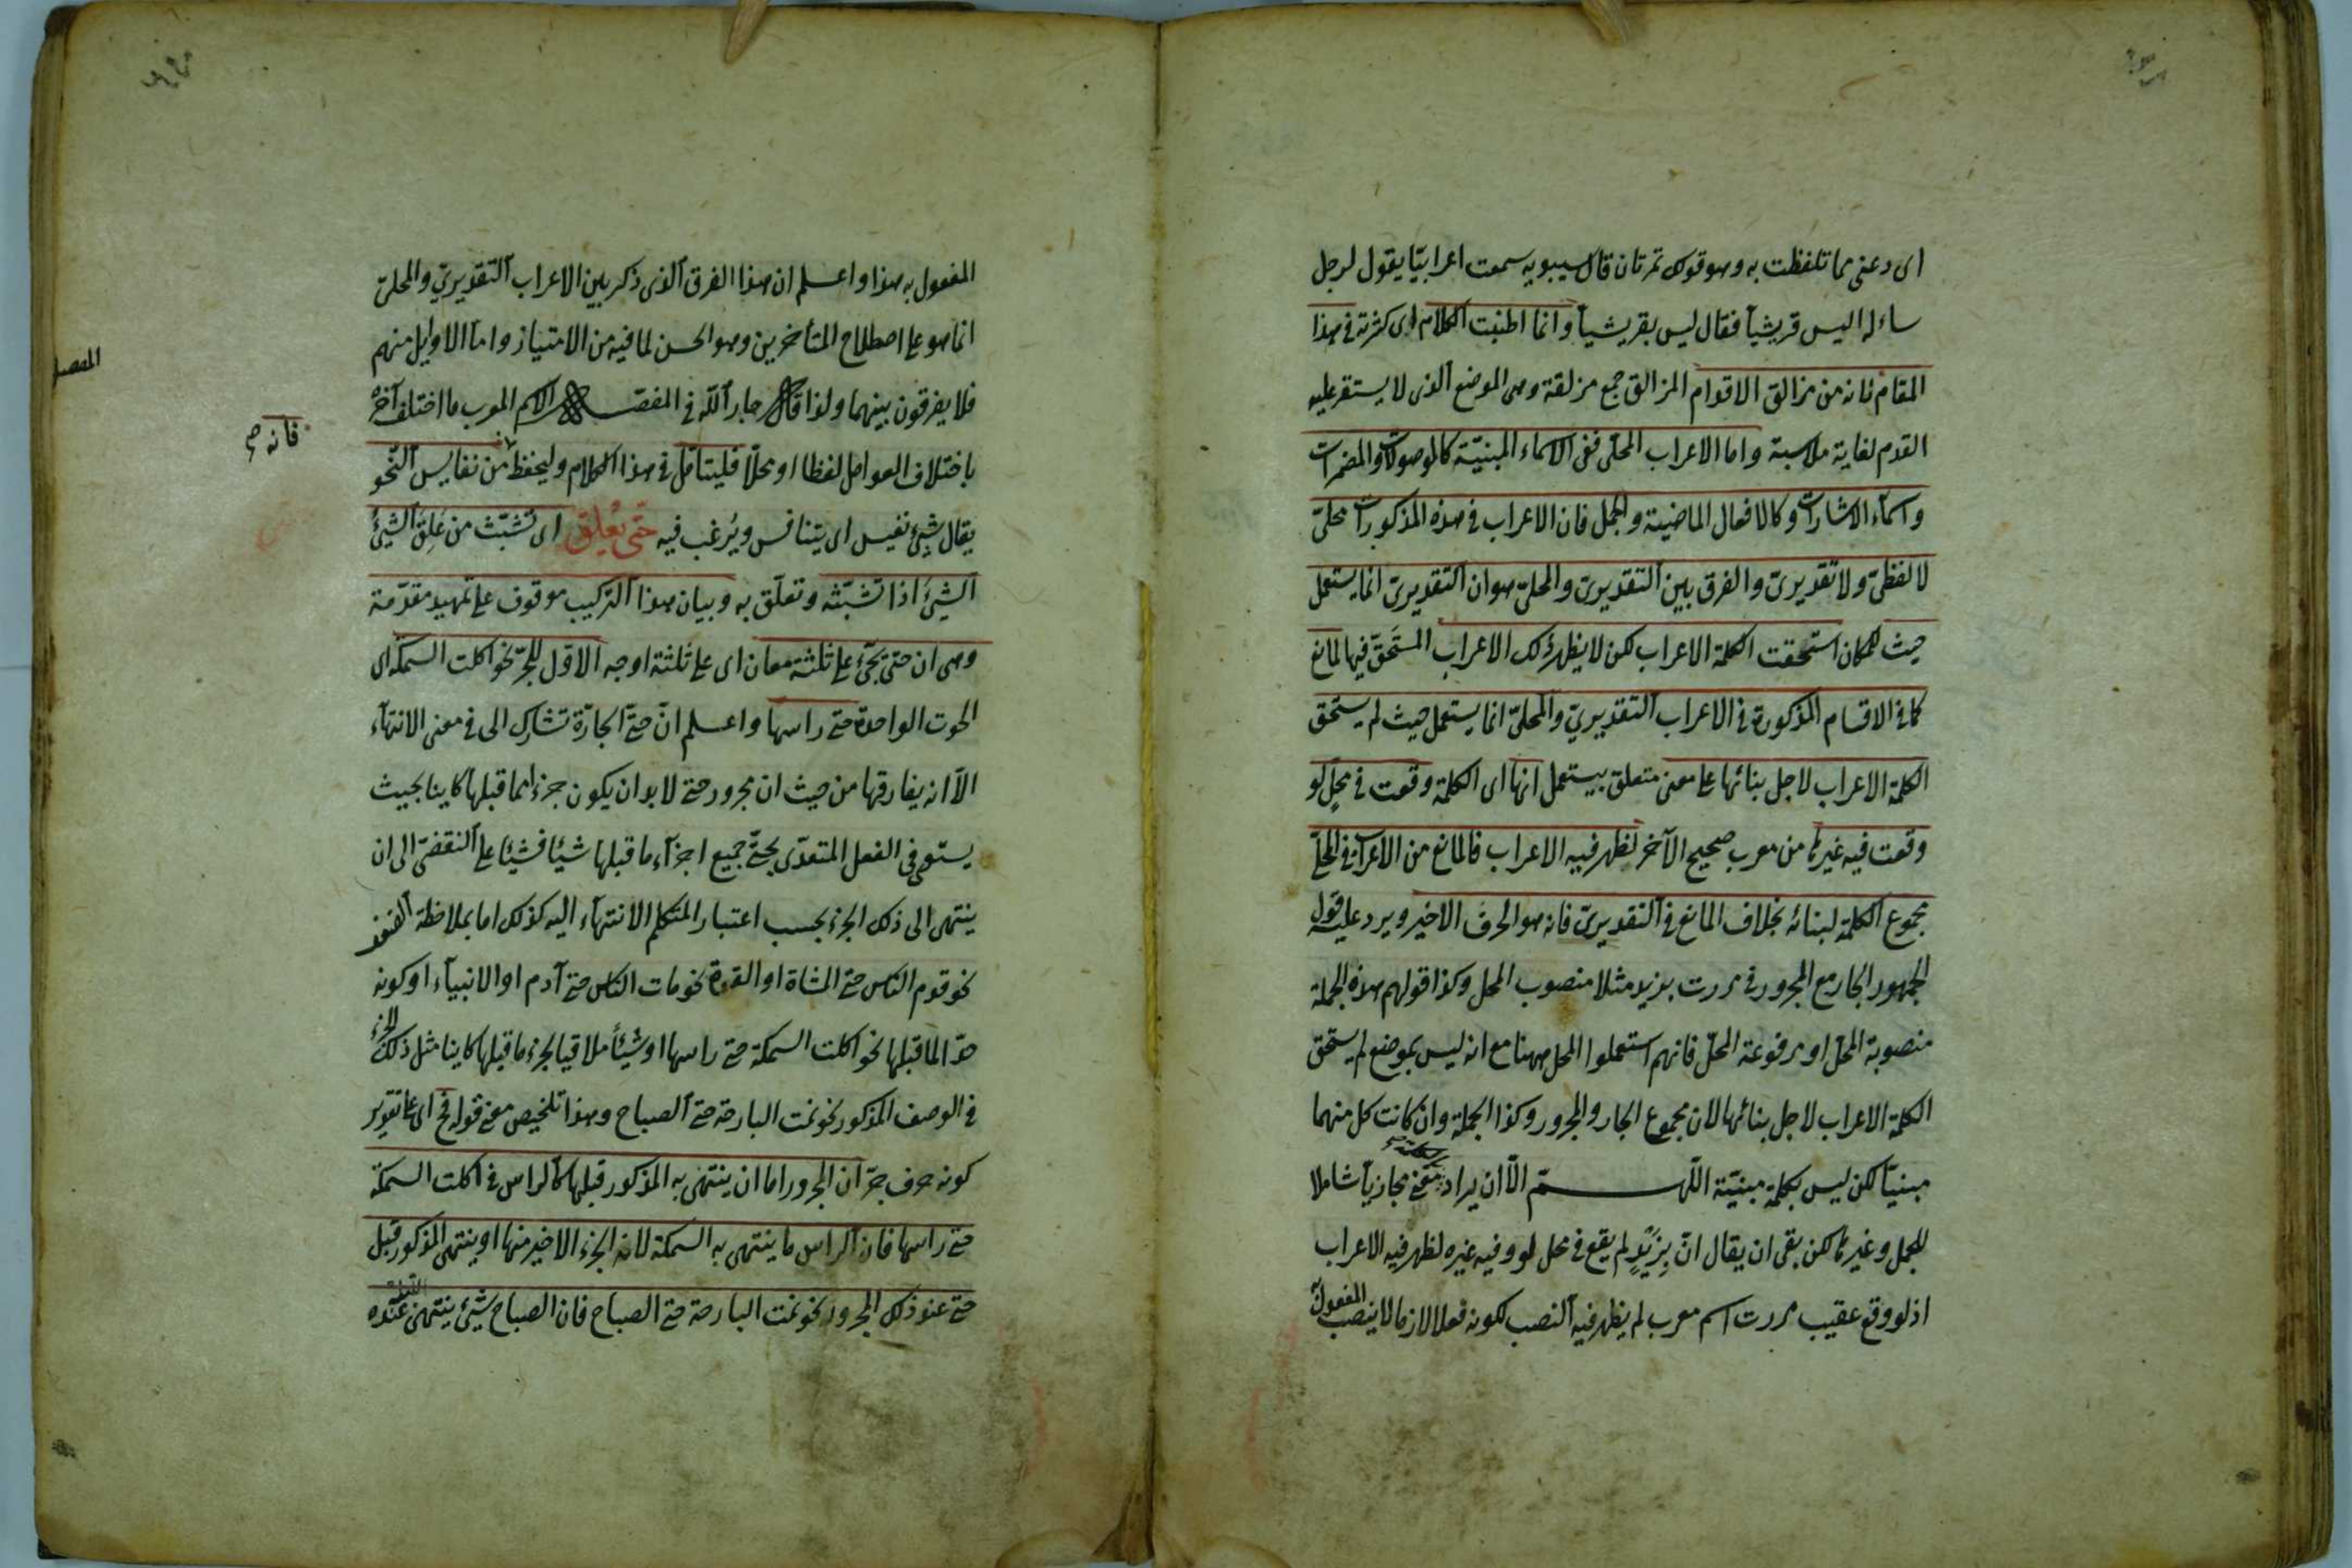 اى دعنى مما تلفظت به وهو قولك تمرتان قال سيبويه سمعت اعرابيّا يقول لرجل
ساءله اليس قريشياً فقال ليس بقريشياً وانما اطنبت الكلام اى كثرته فى هذا
المقام فانه من مزالق الاقدام المزالق جمع مزلقة وهى الموضع الذى لا يستقر عليه
القدم لغاية ملاسته واما الاعراب المحلى ففى الاسماء المبنيّة كالموصولات والمضمرات
واسماء الاشارات وكالافعال الماضية والجمل فان الاعراب فى هذه المذكورات محلىّ
لا لفظىّ ولا تقديرىّ والفرق بين التقديرىّ والمحلىّ هو ان التقديرىّ انما يستعمل
حيث كان استحقت الكلمة الاعراب لكن لا يظهر ذلك الاعراب المستحَقّ فيها لمانع
كما فى الاقسام المذكورة فى الاعراب التقديرىّ والمحلىّ انما يستعمل حيث لم يستحق
الكلمة الاعراب لاجل بنائها على معنى متعلق بيستعمل انها اى الكلمة وقعت فى محلٍ لو
وقعت فيه غيرها من معرب صحيح الآخر لظهر فيه الاعراب فالمانع من الاعراب فى المحلىّ
مجموع الكلمة لبنائه بخلاف المانع فى التقديرىّ فانه هو الحرف الاخير ويرد عليه قول
الجمهور الجار مع المجرور فى مررت بزيد مثلا منصوب المحل وكذا قولهم هذه الجملة
منصوبة المحلّ او مرفوعة المحلّ فانهم استعملوا المحل ههنا مع انه ليس بموضع لم يستحق
الكلمة الاعراب لاجل بنائها لان مجموع الجار والمجرور وكذا الجملة وان كانت كل منهما
مبنيّاً لكن ليس بكلمة مبنيّة اللهم الّا ان يراد معنى مجازياً شاملا
للجمل وغيرها لكن بقى ان يقال انّ بِزَيْدٍ لم يقع فى محل لو وقع فيه غيره لظهر فيه الاعراب
اذ لو وقع عقيب مررت اسم معرب لم يظهر فيه النصب لكونه فعلا لازما لا ينصب المفعول
المفعول به هذا واعلم ان هذا الفرق الذى ذكر بين الاعراب التقديرىّ والمحلىّ
انما هو على اصطلاح المتأخرين وهو الحسن لما فيه من الامتياز واما الاوايل منهم
فلا يفرقون بينهما ولذا قال جار اللّه فى المفصل الاسم المعرب ما اختلف آخره
باختلاف العوامل لفظا او محلّا فليتأمل فى هذا الكلام وليحفظ من نفايس النّحو
فانه صح
المفصل
يقال شىءٌ نفيس اى يتنافس ويُرغب فيه حَتّى يُعْلِق اى تشبّث من عَلِقَ الشىءُ
الشىءَ اذا تشبّثه وتعلّق به وبيان هذا التركيب موقوف على تمهيد مقدّمة
وهى ان حتى تجىء على ثلثة معان اى على ثلثة اوجه الاوّل للجرّ نحو اكلت السمكة اى
الحوت الواحدة حتى راسها واعلم انّ حتىّ الجارّة تشارك الى فى معنى الانتهآء
الاّ انه يفارقها من حيث ان مجرور حتى لا بد ان يكون جزءاً مما قبلها كاينا بحيث
يستوفى الفعل المتعدّى بحتىّ جميع اجزآء ما قبلها شيئًا فشيئًا على التقضّى الى ان
ينتهى الى ذلك الجزء بحسب اعتبار المتكلم الانتهآء اليه كذلك اما بملاحظة الضعف
نحو قدم الناس حتى المشاة او القوة نحو مات الناس حتى آدم او الانبيآء او كونه
حدّا لما قبلها نحو اكلت السمكة حتى راسها او شيئاً ملاقيا لجزء ما قبلها كاينا مثل ذلك الجزء
فى الوصف المذكور نحو نمت البارحة حتى الصباح وهذا تلخيص معنى قوله فح اى على تقدير
كونه حرف جرّ ان المجرور اما ان ينتهى به المذكور قبلها كالراس فى اكلت السمكة
حتى راسها فان الراس ما ينتهى به السمكة لانه الجزء الاخير منها او ينتهى المذكور قبل
حتى عند ذلك المجرور نحو نمت البارحة حتى الصباح فان الصباح شىء ينتهى عنده